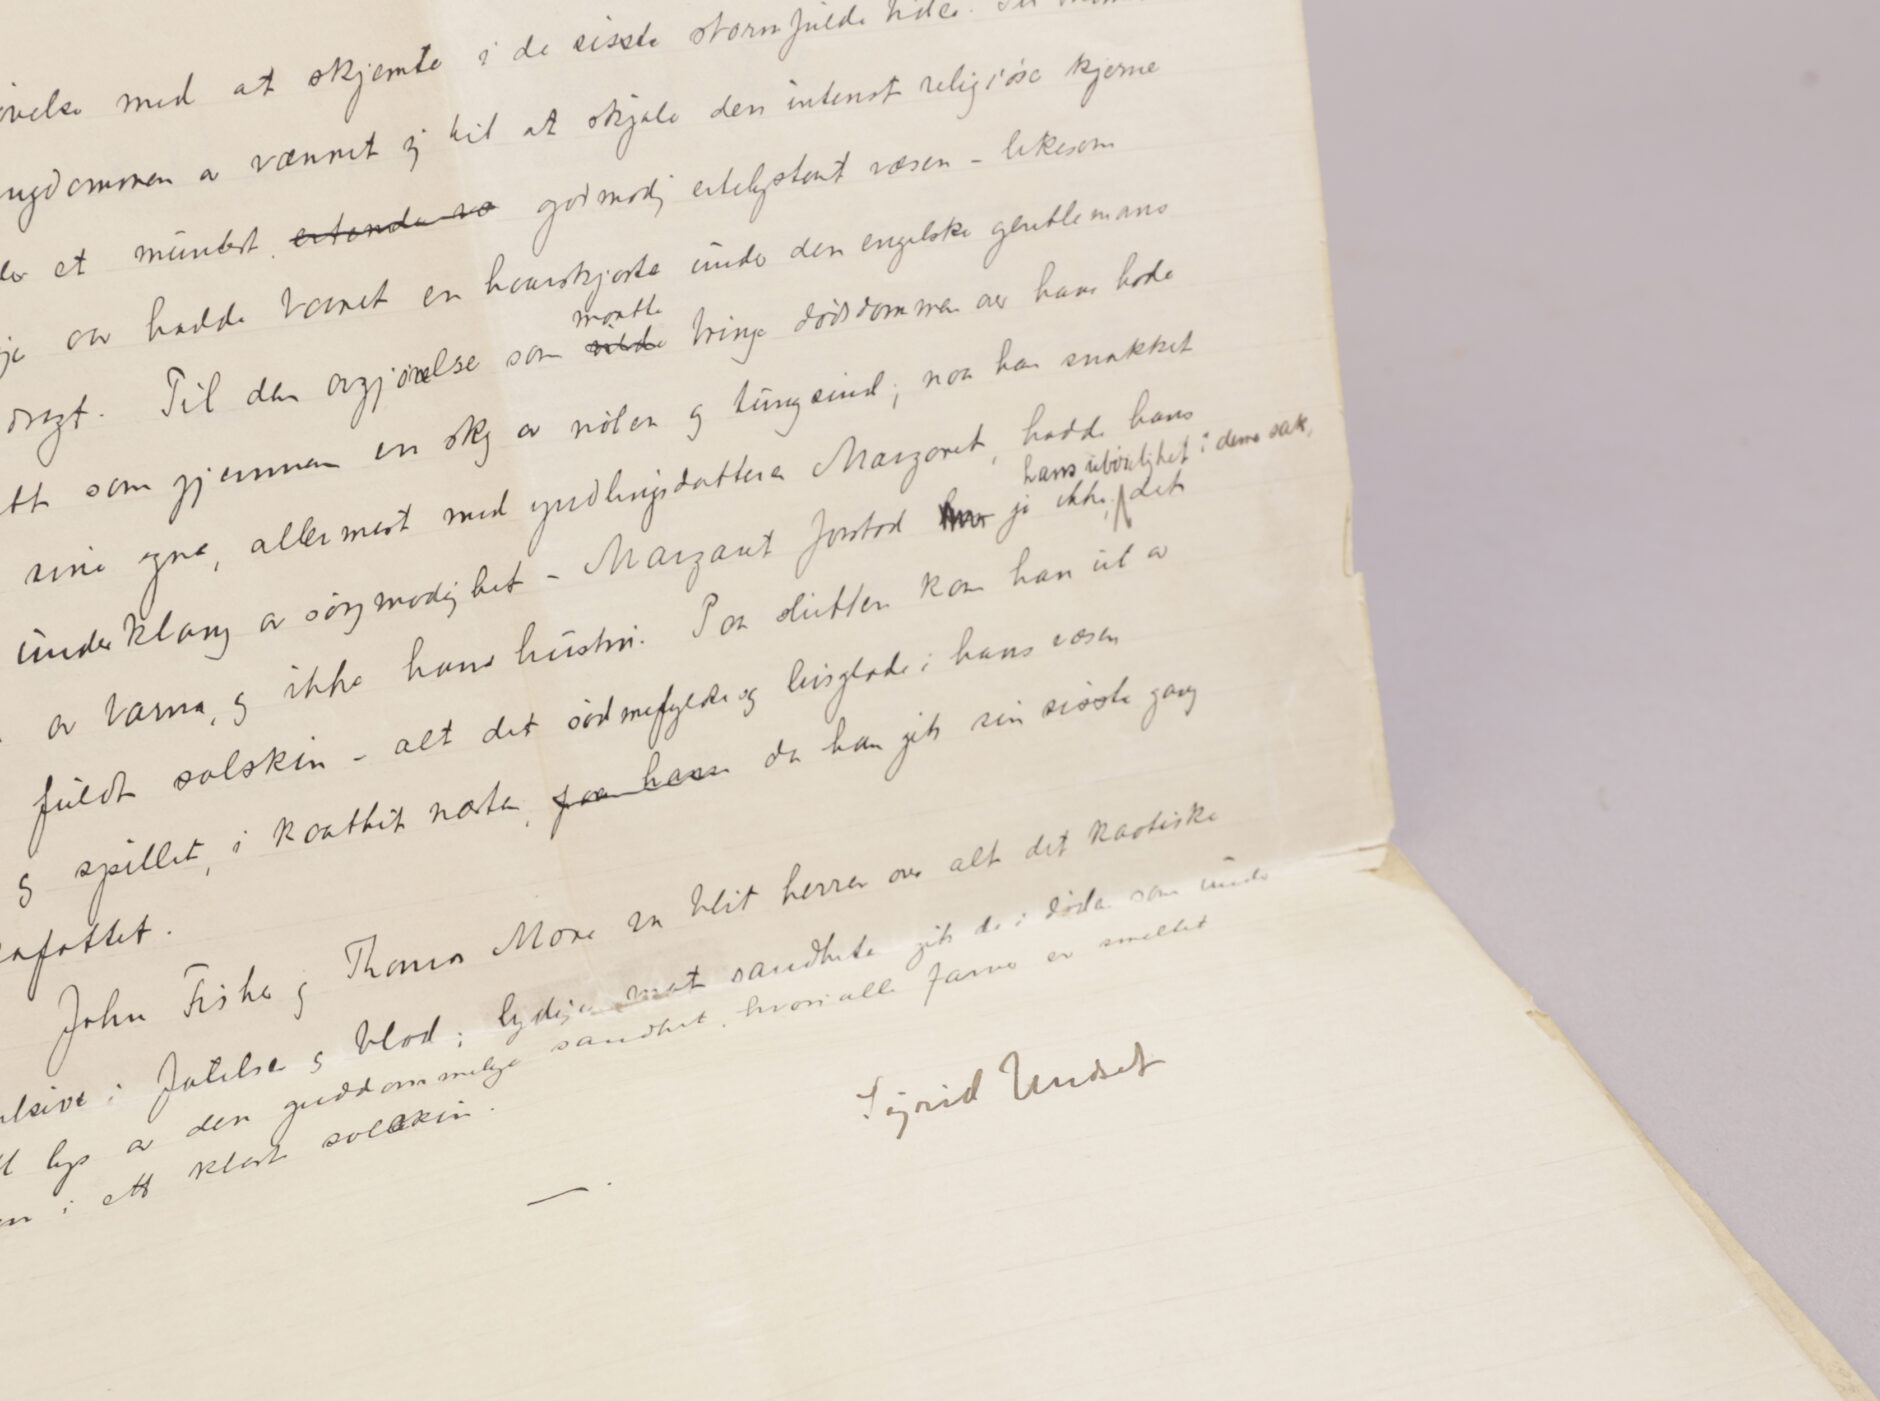 øvelse med at skjemte i de sisste stormfulde tider.
ungdommen av vænnet sig til at skjule den intenst religiøse kjerne
et muntert, ertende godmodig ertelystent væsen - likesom
aar hadde baaret en haarskjorte under den engelske gentlemans
dragt. Til den avgjørelse som vilde maatte bringe dødsdommen over hans hode
som gjennem en sky av nølen og tungsind; naar han snakket
sine egne, allermest med yndlingsdatteren Margaret, hadde hans
underklang av sørgmodighet - Margaret forstod ham jo ikke, hans ubøielighet i denne sak, det
av barna, og ikke hans hustru. Paa slutten kom han ut av
fuldt solskin - alt det sødmefyldte og livsglade i hans væsen
og spillet, i kaathet næsten, faa ham da han gik sin sisste gang
skafottet.
John Fisher og Thomas More er blit herrer over alt det kaotiske
impulsive i følelser og blod; lydige mot sandheten gik de i døden som under
lys av den guddommelige sandhet, hvori alle farver er smeltet
i ett klart solskin.
Sigrid Undset